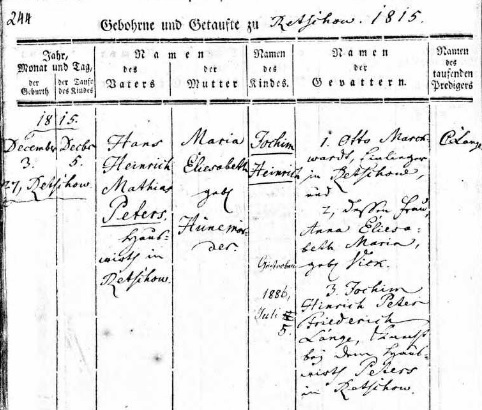 244
Gebohrne und Getaufte zu Retschow. 1815.
Jahr, Monat und Tag,
der Geburth
der Taufe des Kindes
Namen des Vaters
Namen der Mutter
Namen des Kindes.
Namen der Gevattern.
Namen des taufenden Predigers
1815.
December
3.
Decbr
5.
27, Retschow.
Hans
Heinrich
Mathias
Peters.
Haus-
wirth in
Retschow.
Maria
Eliesabeth
geb
Hünemör-
der.
Jochim
Heinrich
Gestorben
1886,
Juli
5.
1. Otto March-
wardt, Einlieger
in Retschow,
und
2, dessen Frau,
Anna Eliesa-
beth Maria,
geb Vick.
3. Jochim
Hinrich Peter
Friederich
Lange,
bei dem Haus-
wirth Peters
in Retschow.
C. Lange